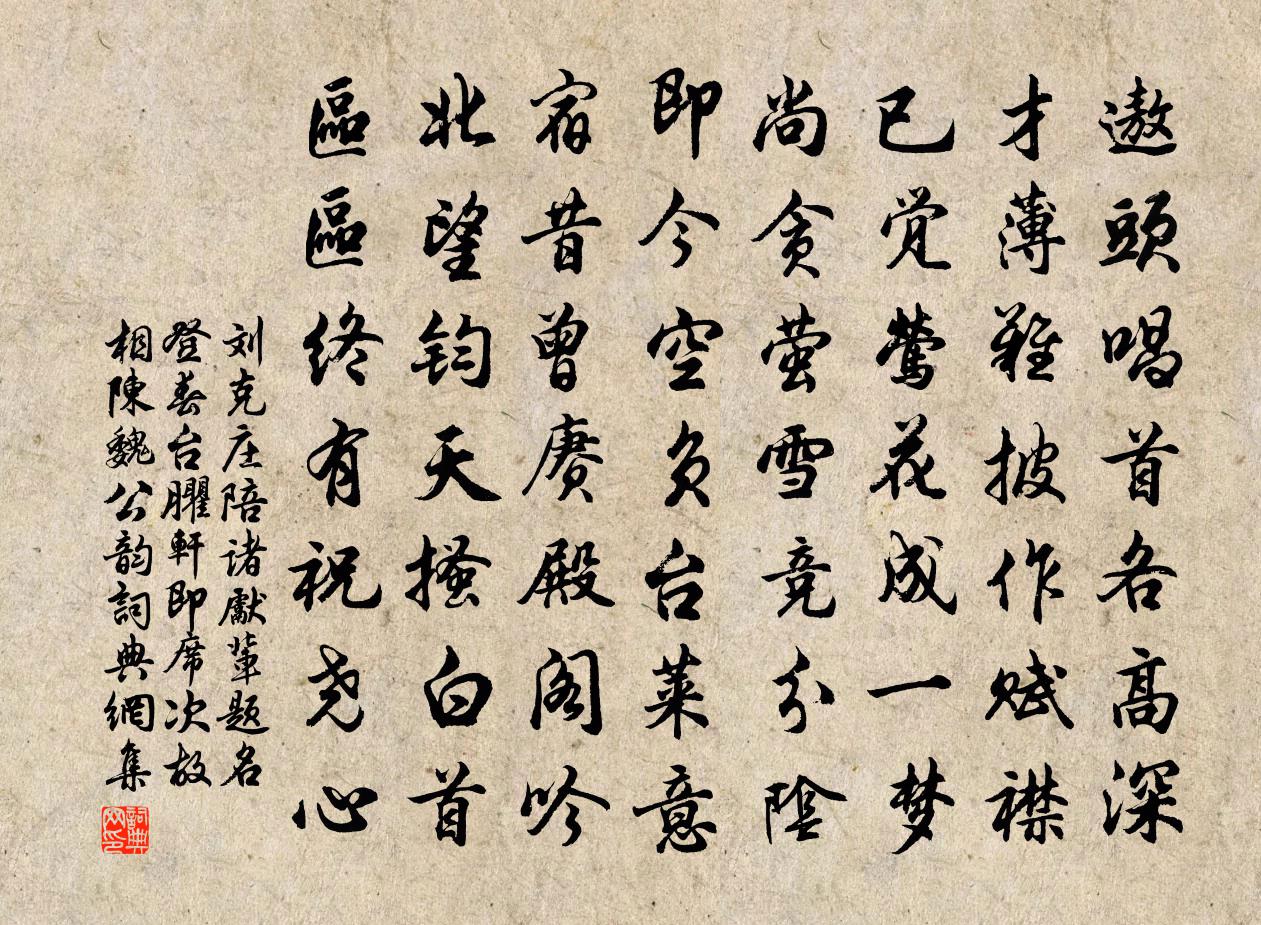 遨頭唱首各高深
才薄難披作賦襟
已觉鶯花成一梦
尚贪萤雪竞分陰
即今空负台莱意
宿昔曾赓殿阁吟
北望钧天搔白首
區區终有祝尧心
刘克庄陪诸獻輩题名
登春台臞軒即席次故
相陳魏公韵詞典網集
詞典網印